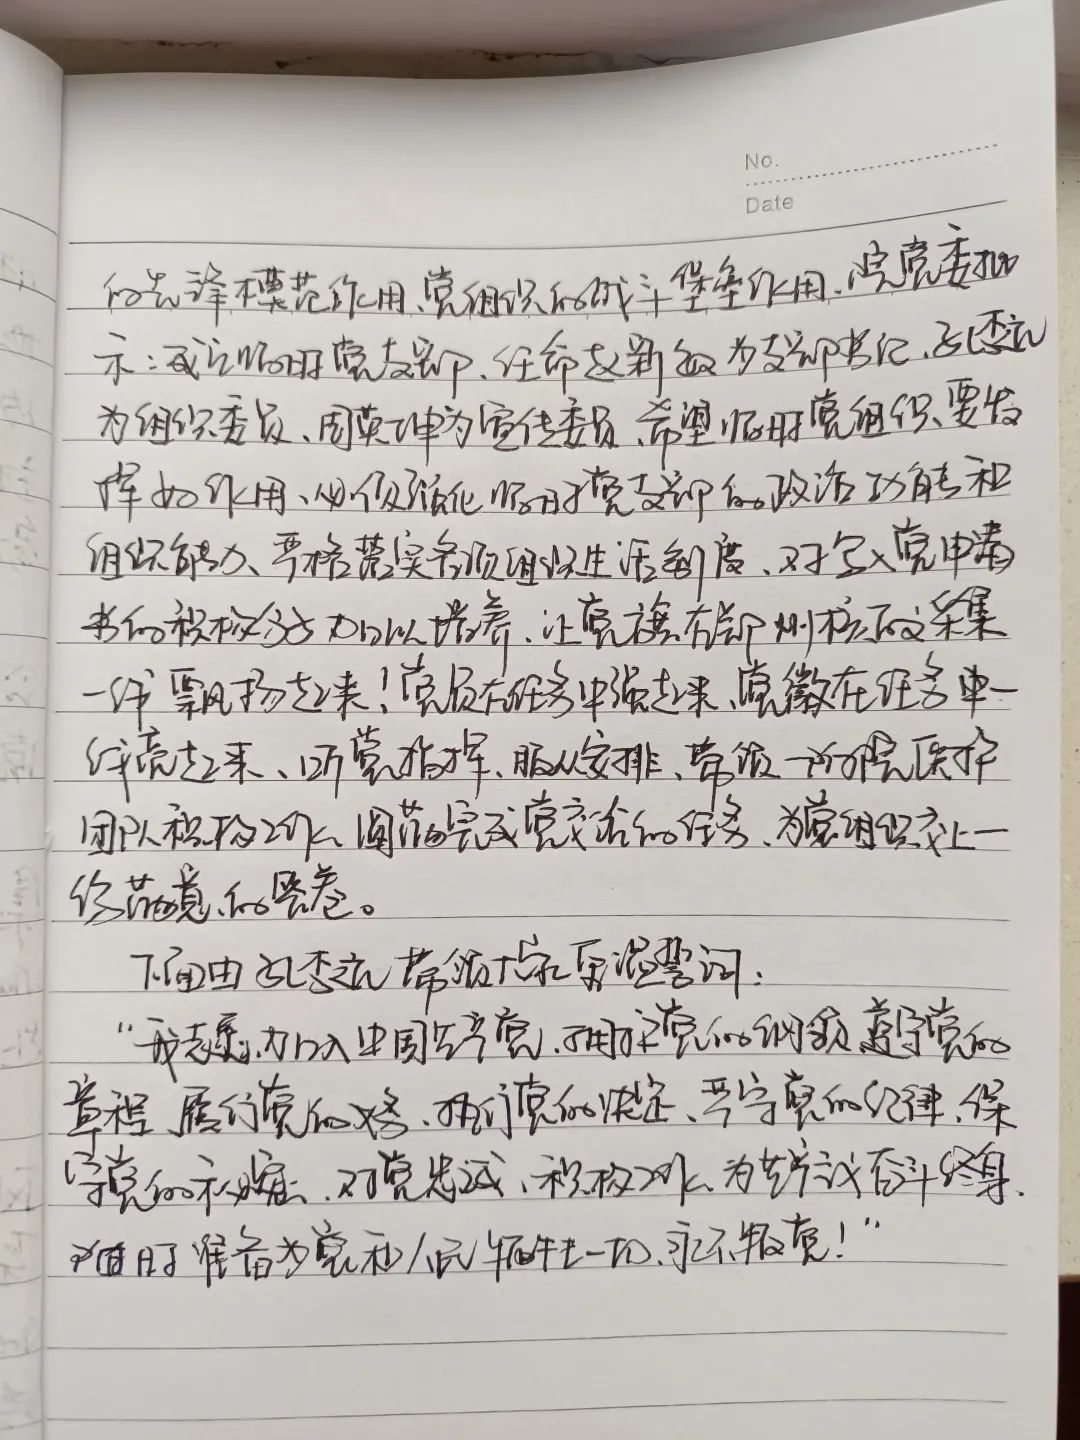 No.
Date
的先锋模范作用、党组织的战斗堡垒作用，院党委批
示：成立临时党支部、任命赵新 为支部书记、孔
为组织委员、周英坤为宣传委员、希望临时党组织要发
挥如作用、必须强化临时党支部的政治功能和
组织能力、严格落实各项组织生活制度、对写入党申请
书的积极分子加以培养、让党旗在郑州核酸采集
一线飘扬起来！党员在任务中强起来、党徽在任务中一
线亮起来、听党指挥、服从安排、带领一附院医护
团队积极工作、圆满完成党交给的任务、为党组织交上一
份满意的答卷。
下面由孔 带领大家重温誓词：
“我志愿加入中国共产党、拥护党的纲领、遵守党的
章程、履行党员义务、执行党的决定、严守党的纪律、保
守党的秘密、对党忠诚、积极工作、为共产主义奋斗终身、
随时准备为党和人民牺牲一切、永不叛党！”